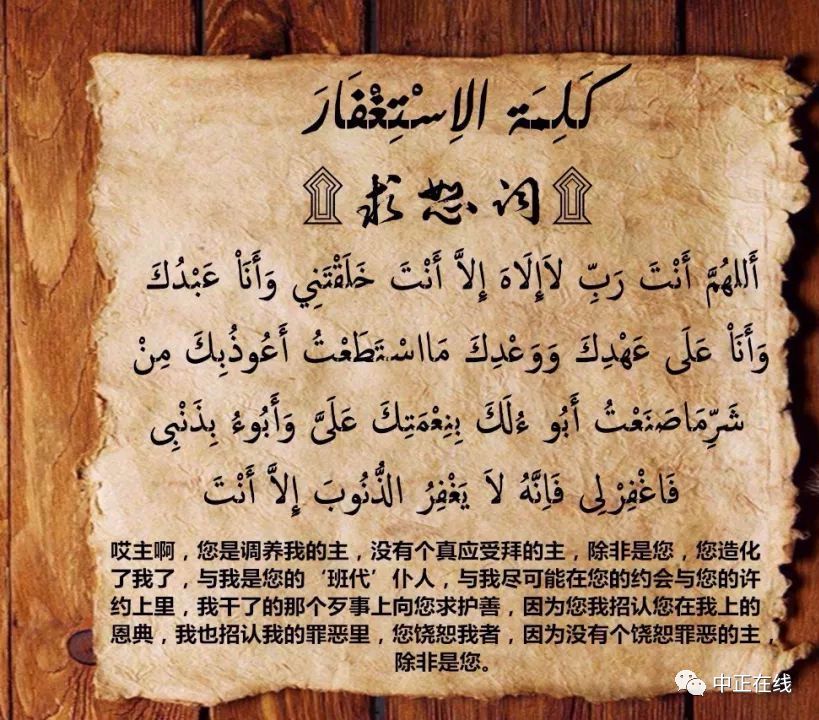 كَلِمَة الاِسْتِغْفَارَ
۩ 求恕词 ۩
أَللهُمَّ أَنْتَ رَبِّ لاَإِلَاهَ إِلاَّ أَنْتَ خَلَقْتَنِي وَأَنَاْ عَبْدُكَ
وَأَنَاْ عَلَى عَهْدِكَ وَوَعْدِكَ مَااسْتَطَعْتُ أَعُوذُبِكَ مِنْ
شَرِّمَاصَنَعْتُ أَبُو ءُلَكَ بِنِعْمَتِكَ عَلَىَّ وَأَبُوءُ بِذَنْبِى
فَاغْفِرْلِى فَاِنَّهُ لاَ يَغْفِرُ الذُّنُوبَ إِلاَّ أَنْتَ
哎主啊，您是调养我的主，没有个真应受拜的主，除非是您，您造化
了我了，与我是您的‘班代’仆人，与我尽可能在您的约会与您的许
约上里，我干了的那个歹事上向您求护善，因为您我招认您在我上的
恩典，我也招认我的罪恶里，您饶恕我者，因为没有个饶恕罪恶的主，
除非是您。
中正在线